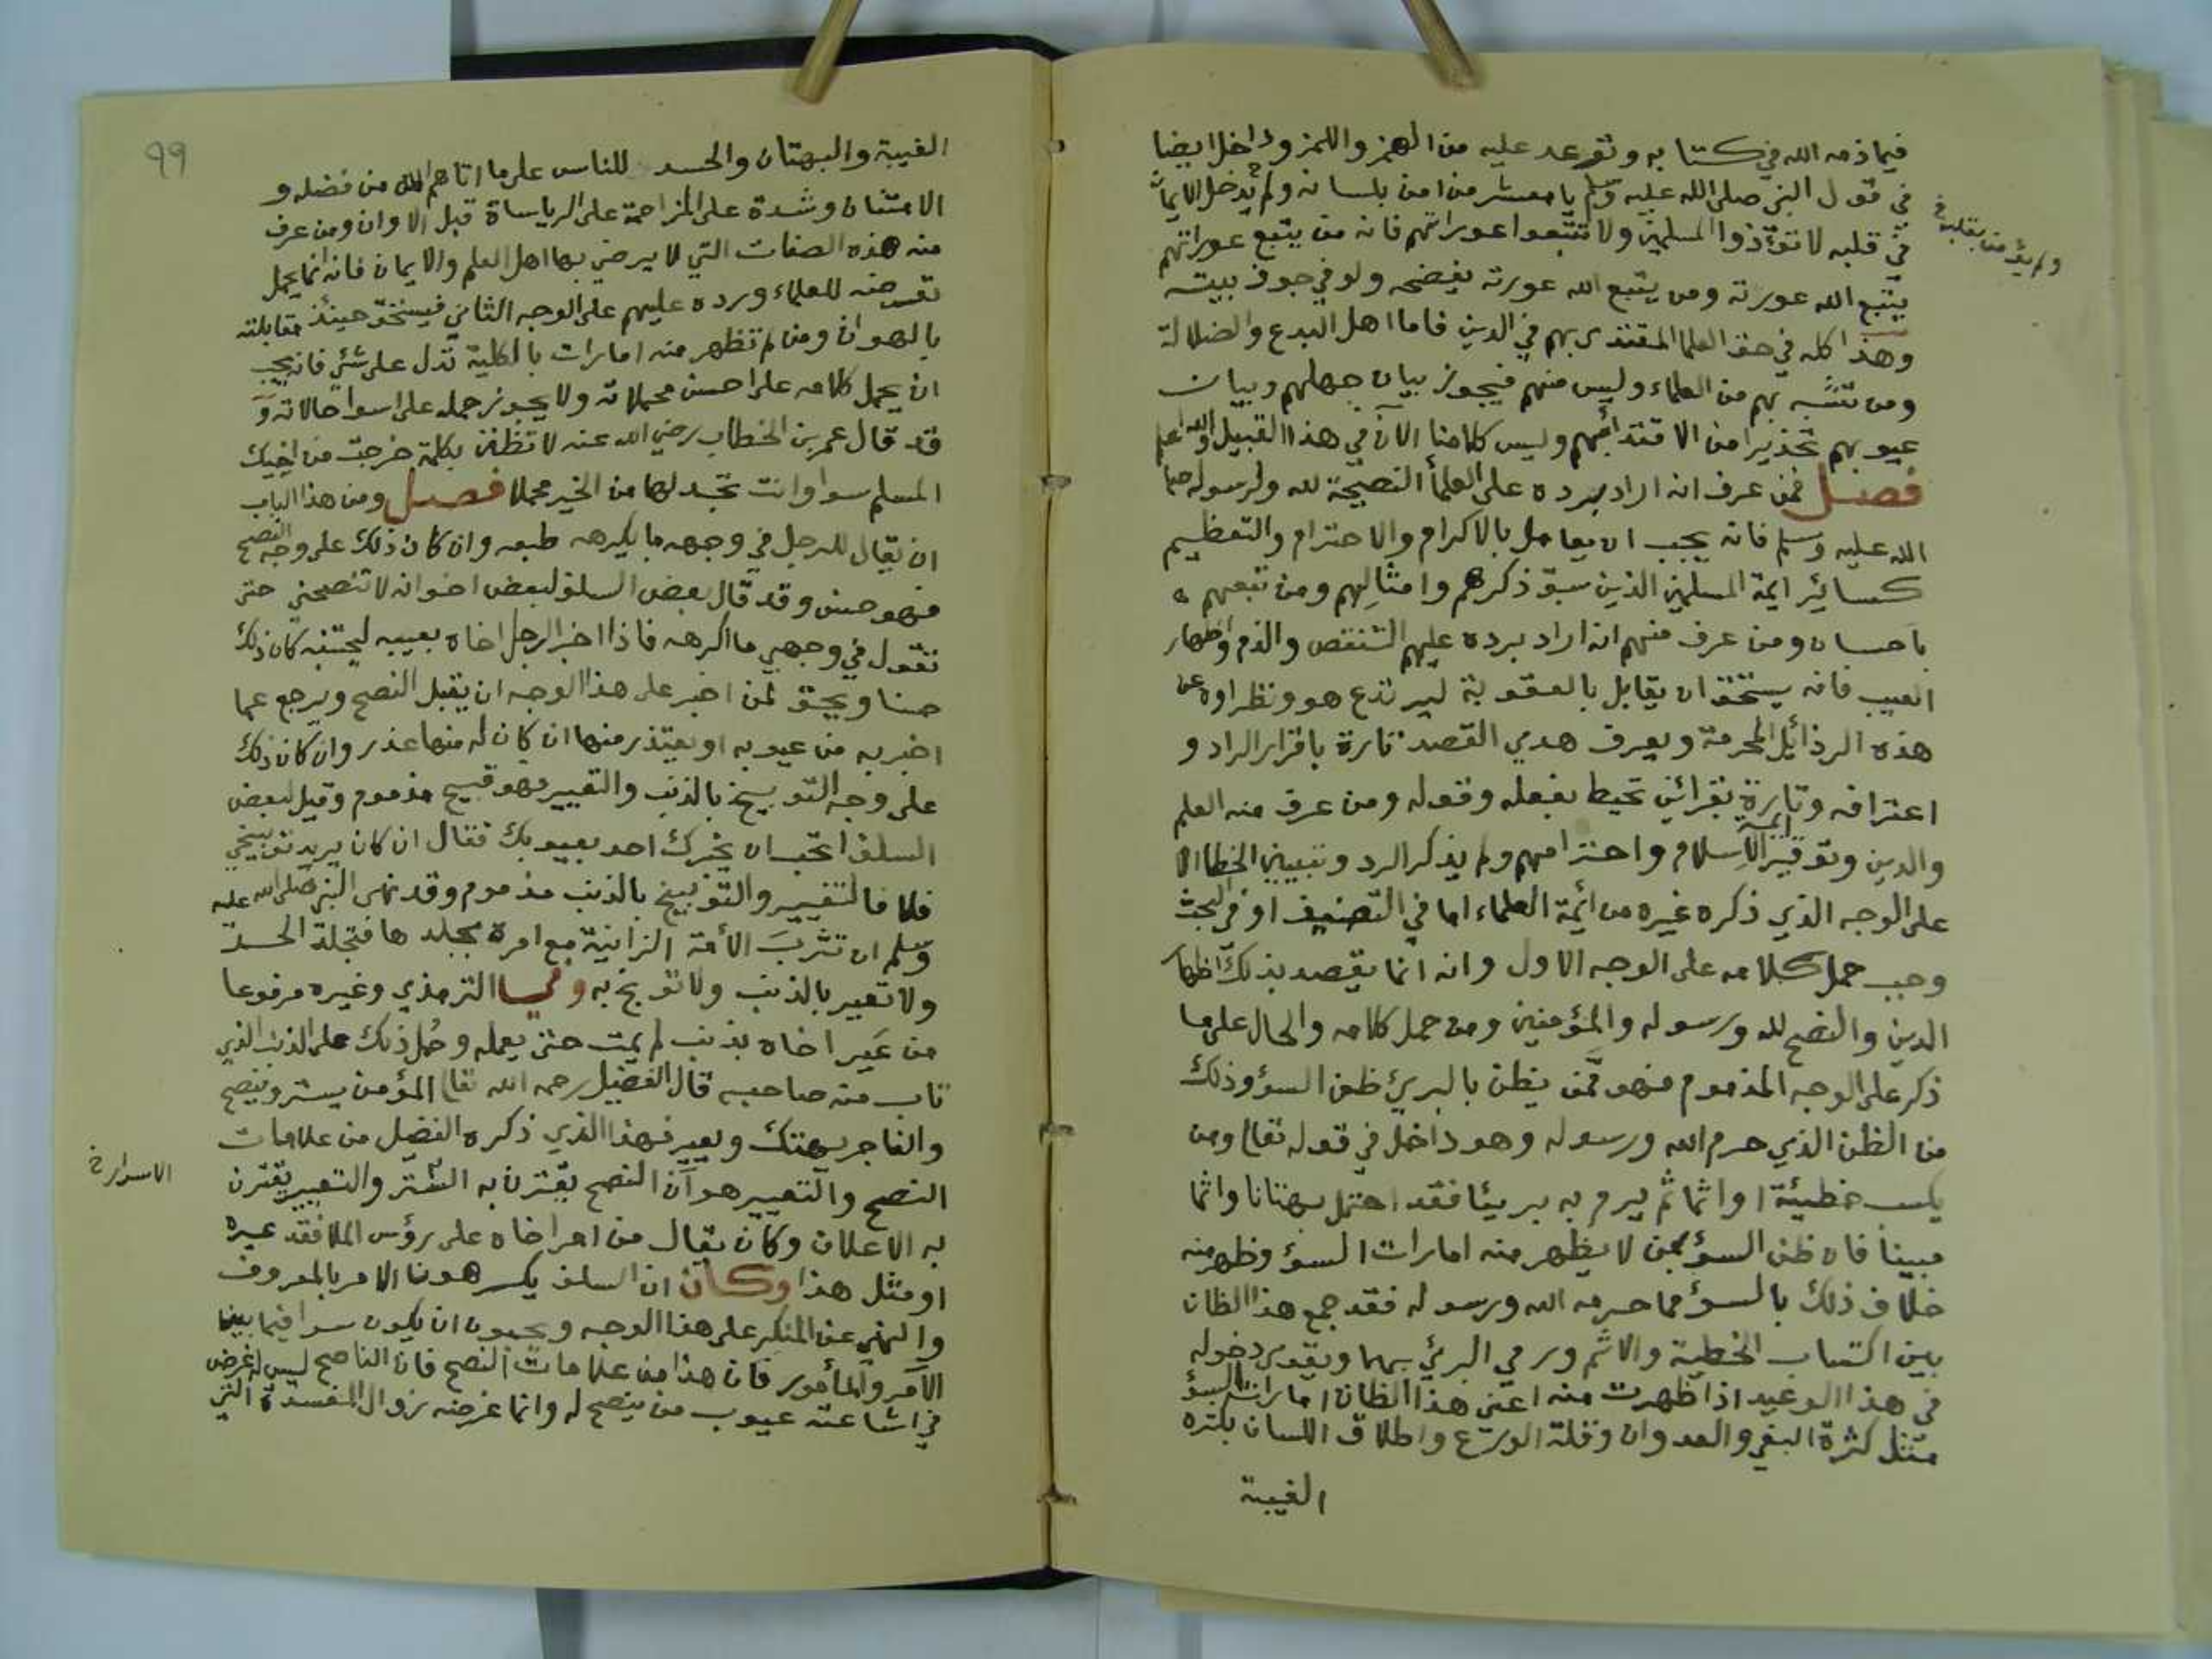 فيما ذمه الله في كتابه وتوعد عليه من الهمز واللمز وداخل ايضا
في قول النبي صلى الله عليه وسلم يا معشر من امن بلسانه ولم يدخل الايمان
في قلبه لا تؤذوا المسلمين ولا تتبعوا عوراتهم فانه من يتبع عوراتهم
يتبع الله عورته ومن يتبع الله عورته يفضحه ولو في جوف بيته
وهذا كله في حق العلما المقتدى بهم في الدين فاما اهل البدع والضلالة
ومن تشبه بهم من العلماء وليس منهم فيجوز بيان جهلهم وبيان
عيوبهم تحذيرا من الاقتداء بهم وليس كلامنا الآن في هذا القبيل والله اعلم
فصل فمن عرف انه اراد برده على العلماء النصيحة لله ولرسوله صلى
الله عليه وسلم فانه يجب ان يعامل بالاكرام والاحترام والتعظيم
كسائر ايمة المسلمين الذين سبق ذكرهم وامثالهم ومن تبعهم
باحسان ومن عرف منهم انه اراد برده عليهم التنقص والذم واظهار
العيب فانه يستحق ان يقابل بالعقوبة ليرتدع هو ونظراوه عن
هذه الرذائل المحرمة ويعرف هدي القصد تارة باقرار الراد و
اعترافه وتارة بقرائن تحيط بفعله وقوله ومن عرف منه العلم
والدين وتوقير ائمة الاسلام واحترامهم ولم يذكر الرد وتبيين الخطا الا
على الوجه الذي ذكره غيره من أئمة العلماء اما في التصنيف او في البحث
وجب حمل كلامه على الوجه الاول وانه انما يقصد بذلك اظهار
الدين والنصح لله ورسوله والمؤمنين ومن حمل كلامه والحال على ما
ذكر على الوجه المذموم فهو ممن يظن بالبريء ظن السؤ وذلك
من الظن الذي حرم الله ورسوله وهو داخل في قوله تعالى ومن
يكسب خطيئة او اثما ثم يرم به بريئا فقد احتمل بهتانا واثما
مبينا فان ظن السؤ بمن لا يظهر منه امارات السؤ وظهر منه
خلاف ذلك بالسؤ مما حرمه الله ورسوله فقد جمع هذا الظان
بين اكتساب الخطية والاثم ورمي البرئ بهما ويقوى دخوله
في هذا الوعيد اذا ظهرت منه اعني هذا الظان امارات السؤ
مثل كثرة البغي والعدوان وقلة الورع واطلاق اللسان بكثره
الغيبة
ولم يؤمن بقلبه خ
99
الغيبة والبهتان والحسد للناس على ما اتاهم الله من فضله و
الامتنان وشدة على المزاحمة على الرياساة قبل الاوان ومن عرف
منه هذه الصفات التي لا يرضي بها اهل العلم والايمان فانه انما يحمل
تعرضه للعلماء ورده عليهم على الوجه الثاني فيستحق حينئذ مقابلته
بالهوان ومن لم تظهر منه امارات بالكلية تدل على شيء فانه يجب
ان يحمل كلامه على احسن محملاته ولا يجوز حمله على اسوا حالاته و
قد قال عمر بن الخطاب رضي الله عنه لا تظنن بكلمة خرجت من اخيك
المسلم سوا وانت تجد لها من الخير محملا فصل ومن هذا الباب
ان يقال للرجل في وجهه ما يكرهه طبعه وان كان ذلك على وجه النصح
فهو حسن وقد قال بعض السلف لبعض اخوانه لا تنصحني حتى
تقول في وجهي ما اكرهه فاذا اخبر الرجل اخاه بعيبه ليجتنبه كان ذلك
حسنا ويحق لمن اخبر على هذا الوجه ان يقبل النصح ويرجع عما
اخبر به من عيوبه او يعتذر منها ان كان له منها عذر وان كان ذلك
على وجه التوبيخ بالذنب والتعيير فهو قبيح مذموم وقيل لبعض
السلف اتحب ان يخبرك احد بعيوبك فقال ان كان يريد توبيخي
فلا فالتعيير والتوبيخ بالذنب مذموم وقد نهى النبي صلى الله عليه
وسلم ان تثرب الأمة الزانية مع امره بجلدها فتجلد الحد
ولا تعير بالذنب ولا توبخ به وفي الترمذي وغيره مرفوعا
من عير اخاه بذنب لم يمت حتى يعمله وحمل ذلك على الذنب الذي
تاب منه صاحبه قال الفضيل رحمه الله تعالى المؤمن يستر وينصح
والفاجر يهتك ويعير فهذا الذي ذكره الفضيل من علامات
النصح والتعيير هو آن النصح يقترن به الستر والتعيير يقترن
به الاعلان وكان يقال من امر اخاه على رؤس الملا فقد عيره
او مثل هذا وكان ان السلف يكرهونا الامر بالمعروف
والنهي عن المنكر على هذا الوجه ويحبون ان يكون سرا فيما بين
الآمر والمأمور فان هذا من علامات النصح فان الناصح ليس له غرض
في اشاعة عيوب من ينصح له وانما غرضه زوال المفسدة التي
الاسرار خ